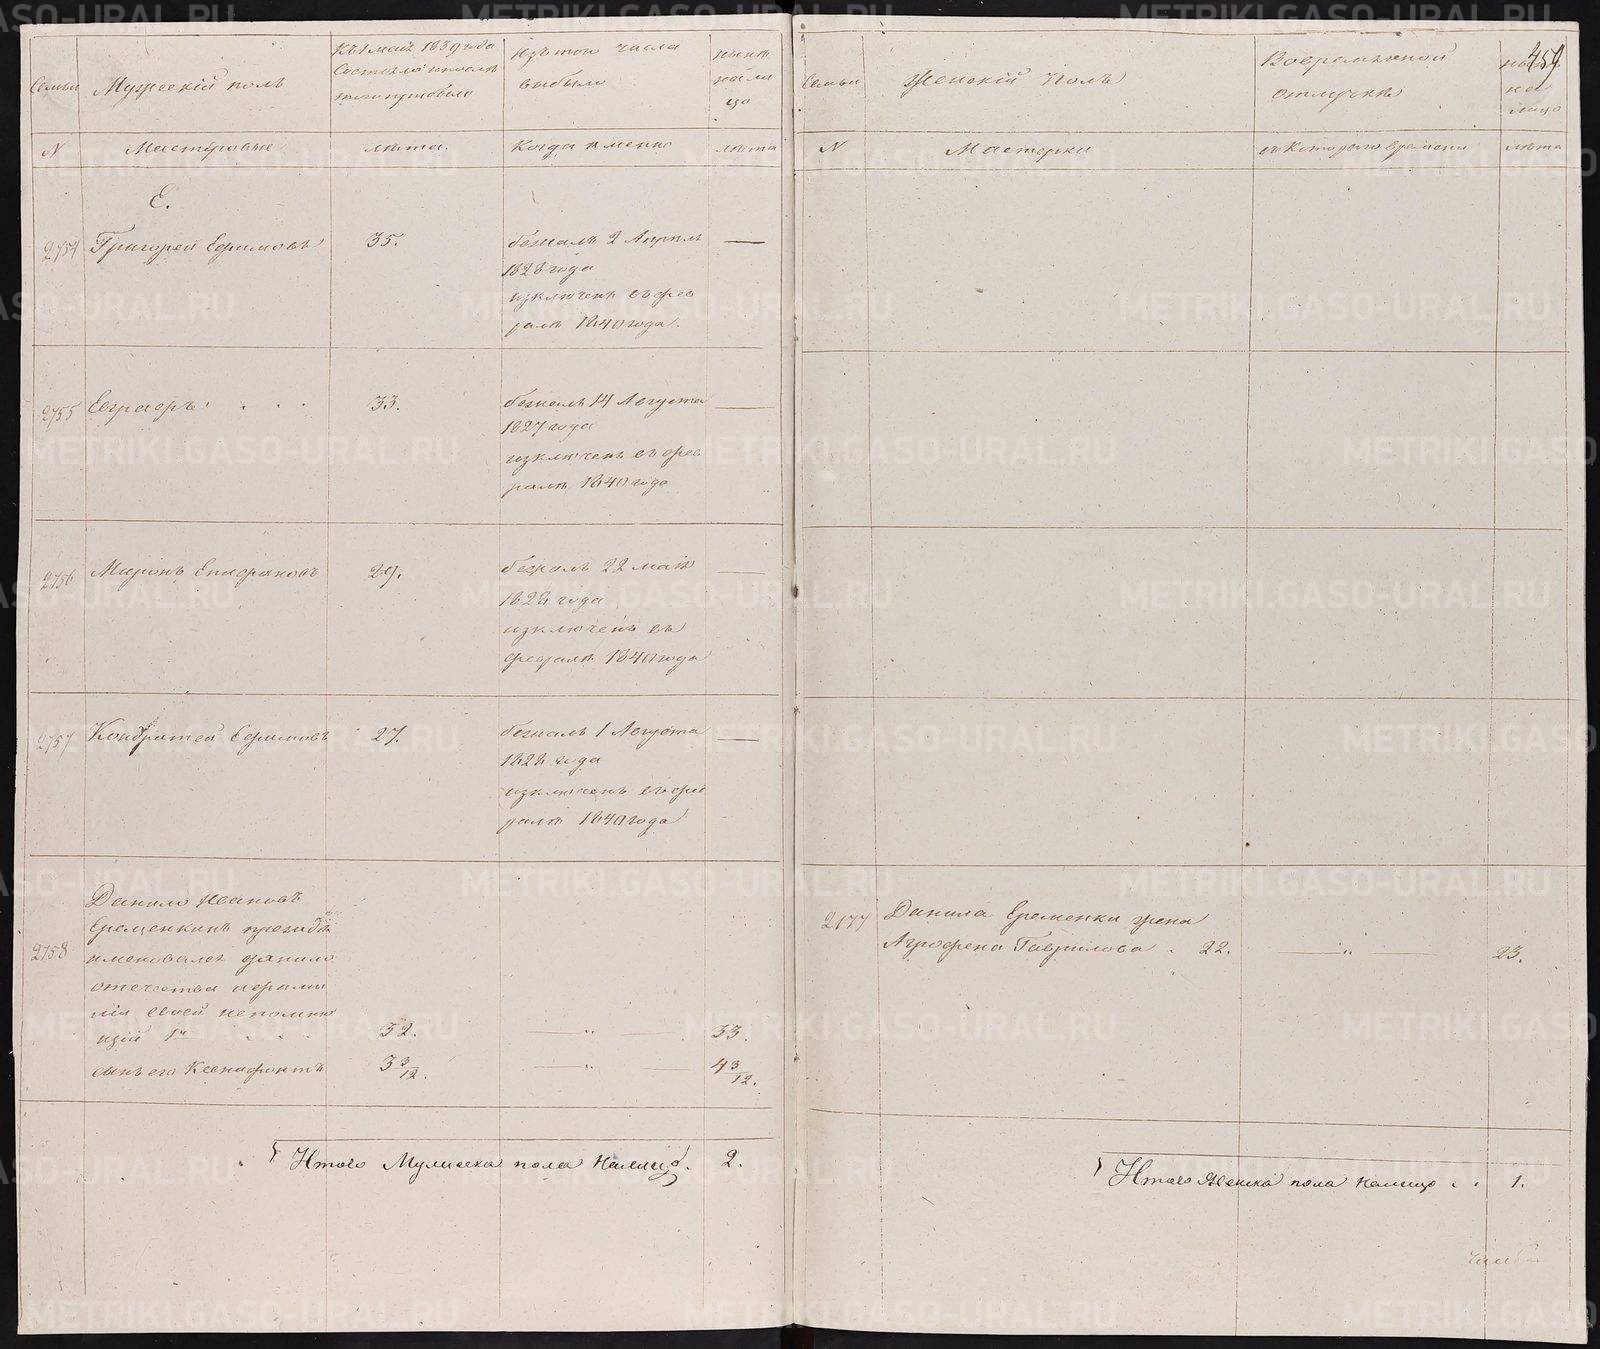 Семьи
Мужескій полъ
Къ 1 маія 1839 года
Состояло и послѣ
того прибыло
Изъ того числа
выбыло
нынѣ
нали
цо
N
Мастеровые
лѣта.
Когда именно
лѣта
Е.
2754
Григорей Ефимовъ
35.
бежалъ 2 Апрѣля
1828 года
изключенъ въ фев
ралѣ 1840 года.
2755
Евграфъ . . .
33.
бежалъ 14 Августа
1827 года
изключенъ въ фев
ралѣ 1840 года
2756
Миронъ Епифановъ
29.
бежалъ 22 маія
1828 года
изключенъ въ
февралѣ 1840 года
2757
Кондратей Ефимовъ
27.
бежалъ 1 Августа
1828 года
изключенъ въ фев
ралѣ 1840 года
2758
Данило Ивановъ
Еременкинъ прежде
именовался Данило
отечества и фами
ліи своей непомня
щій 1й . . .
32.
33.
сынъ его Ксенофонтъ
3 3/12.
4 3/12.
Итого Мужеска пола налицо. 2.
454
Семьи
Женскій полъ
Во временной
отлучкѣ
на
лицо
N
Мастерки
съ Котораго времени
лѣта
2177
Данила Еременки жена
Агрофена Гаврилова . 22.
23.
Итого Женска пола налицо . . 1.
METRIKI.GASO-URAL.RU